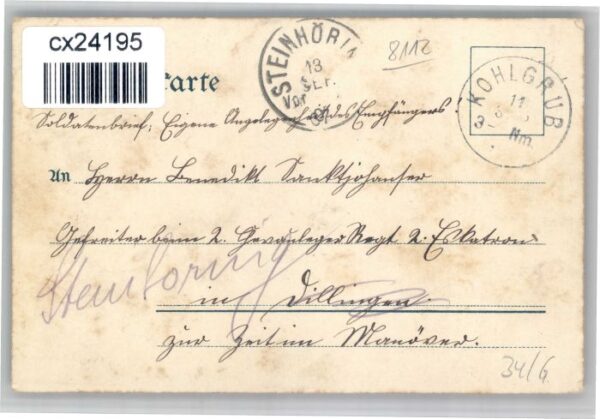 cx24195
8112
STEINHÖRI
13
SEP.
Vor
KOHLGRUB
11
Nm.
karte
Soldatenbrief; Eigene Angelegenheit des Empfängers!
An Herrn Benedikt Sanktjohanser
Gefreiter beim 2. Chevauleger Regt 2. Eskatron
Steinhöring
in Dillingen
zur Zeit im Manöver.
34/6